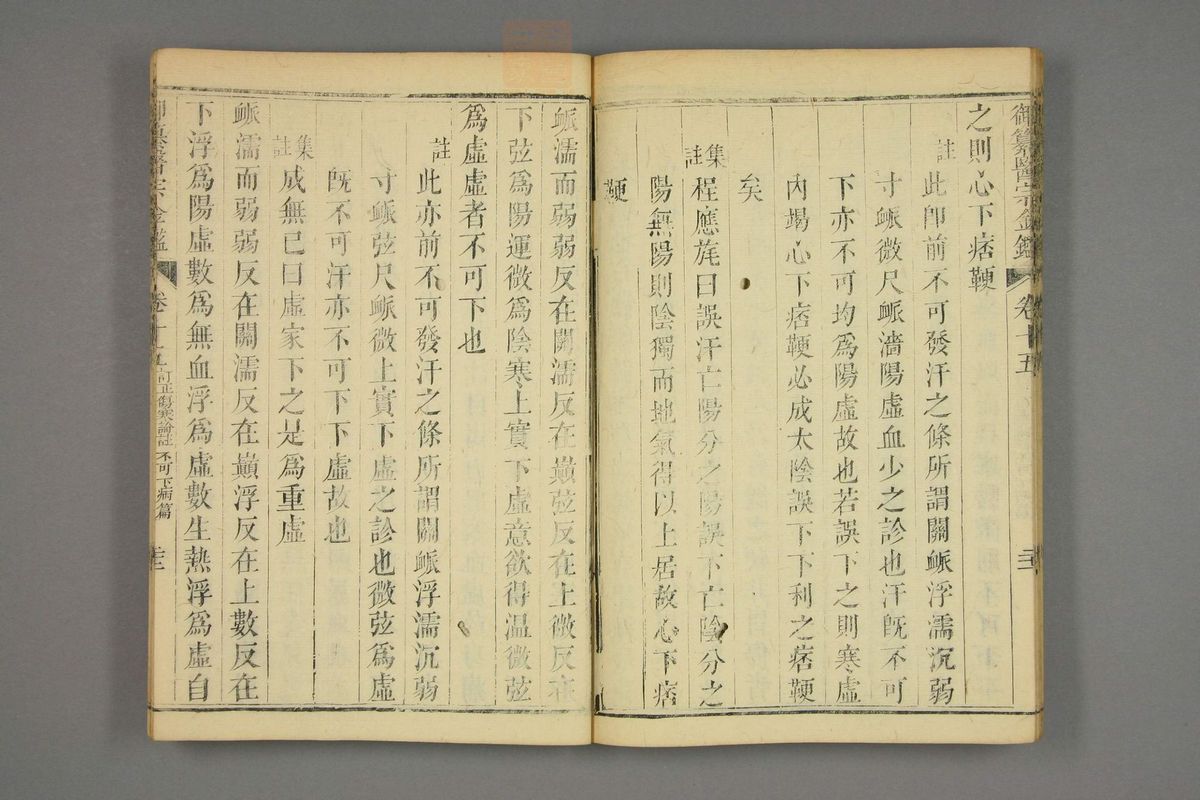 御纂醫宗金鑑 卷十五
之則心下痞鞕
註 此卽前不可發汗之條所謂關𧖴浮濡沉弱
寸𧖴微尺𧖴濇陽虛血少之診也汗旣不可
下亦不可均爲陽虛故也若誤下之則寒虛
內竭心下痞鞕必成太陰誤下下利之痞鞕
矣
集註 程應旄曰誤汗亡陽分之陽誤下亡陰分之
陽無陽則陰獨而地氣得以上居故心下痞
鞕
𧖴濡而弱弱反在關濡反在巔弦反在上微反在
下弦爲陽運微爲陰寒上實下虛意欲得温微弦
爲虛虛者不可下也
註 此亦前不可發汗之條所謂關𧖴浮濡沉弱
寸𧖴弦尺𧖴微上實下虛之診也微弦爲虛
旣不可汗亦不可下下虛故也
集註 成無已曰虛家下之是爲重虛
𧖴濡而弱弱反在關濡反在巔浮反在上數反在
下浮爲陽虛數爲無血浮爲虛數生熱浮爲虛自
御纂醫宗金鑑 卷十五 訂正傷寒論註 不可下病篇